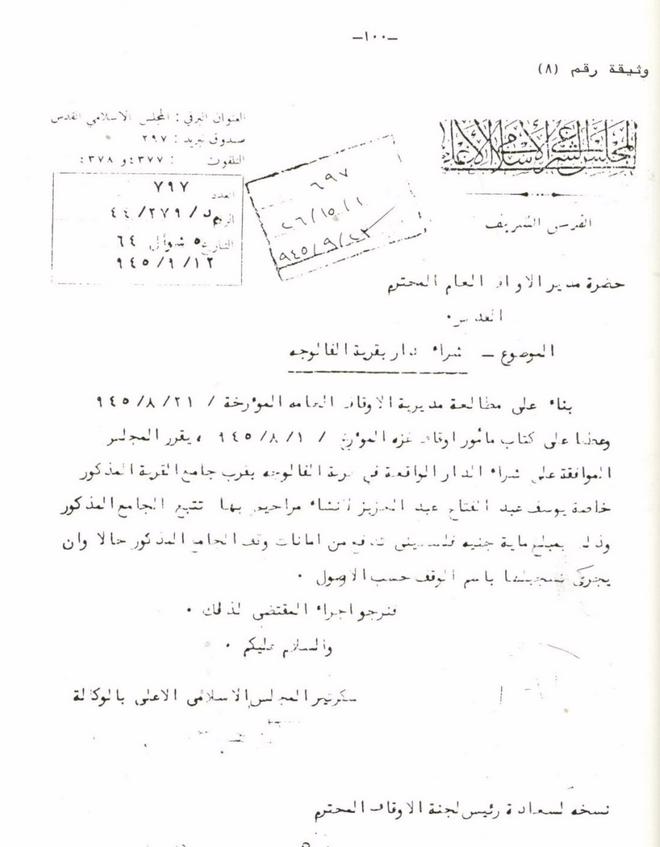 —١٠٠—
وثيقة رقم (٨)
المجلس الشرعي الإسلامي الأعلى
القدس الشريف
العنوان البرقي : المجلس الاسلامي القدس
صندوق بريد : ٢٩٧
التلفون : ٤٣٧٧ و ٤٣٧٨
العدد ٧٩٧
الرقم /٢٧٩/٤٤
التاريخ ٥ شوال ٦٤
٩٤٥/٩/١٢
٦٩٧
٢٦/١٥/١
حضرة مدير الاوقاف العام المحترم
القدس.
الموضوع — شراء دار بقرية الفالوجه
بناء على مطالعة مديرية الاوقاف العامه المؤرخة / ٩٤٥/٨/٢١
وعطفا على كتاب مأمور اوقاف غزه المؤرخ / ٩٤٥/٨/١ ، يقرر المجلس
الموافقة على شراء الدار الواقعة في قرية الفالوجه بقرب جامع القرية المذكور
خاصة يوسف عبد الفتاح عبد العزيز لانشاء مراحيض بها تتبع الجامع المذكور
وذلك بمبلغ ماية جنيه فلسطيني تدفع من امانات وقف الجامع المذكور حالا وان
يجرى تسجيلها باسم الوقف حسب الاصول .
فنرجو اجراء المقتضى لذلك .
والسلام عليكم .
سكرتير المجلس الاسلامي الاعلى بالوكالة
نسخه لسعادة رئيس لجنة الاوقاف المحترم